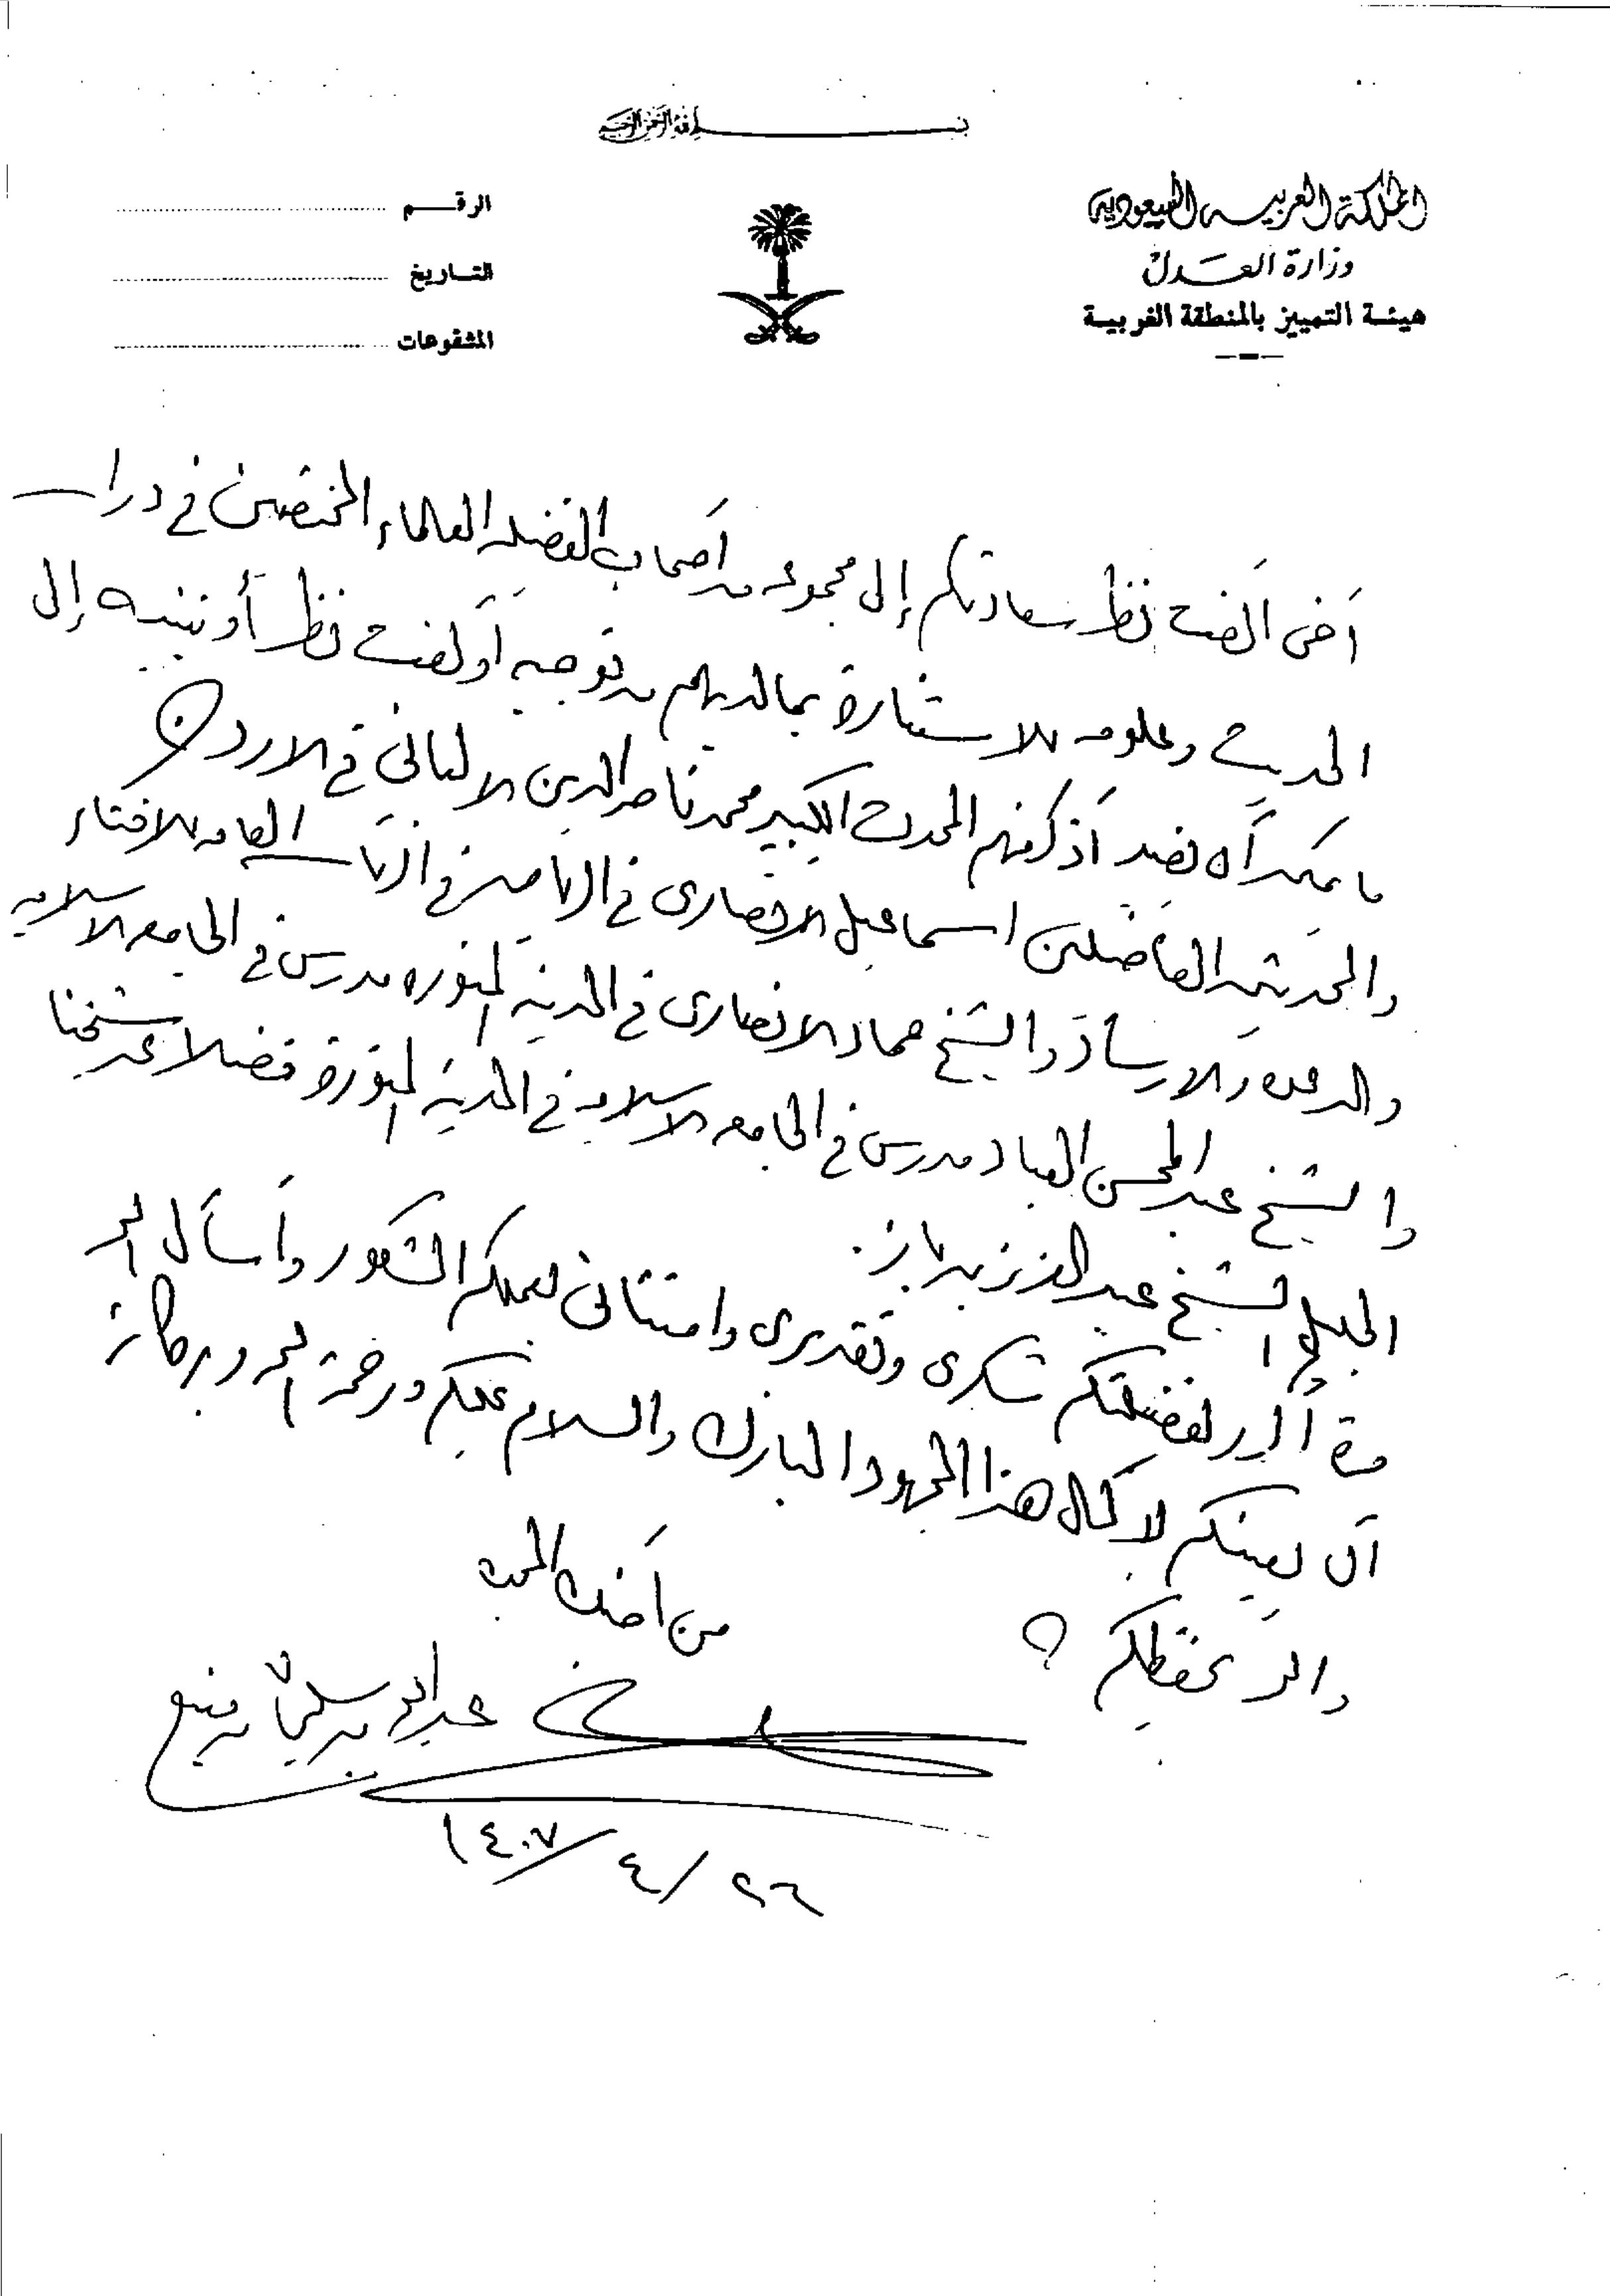 بسم الله الرحمن الرحيم
المملكة العربية السعودية
وزارة العدل
هيئة التمييز بالمنطقة الغربية
الرقم
التاريخ
المشفوعات
أخي ألفت نظر سعادتكم إلى مجموعة من أصحاب الفضيلة العلماء المختصين في دراسة
الحديث وعلومه للاستنارة بما لديهم من توجيه أو لفت نظر أو تنبيه إلى
ما يمكن أن يفيد أذكر منهم المحدث الكبير محمد ناصر الدين الألباني في الأردن
والمحدث الفاضلين اسماعيل الأنصاري في الرياض في الرئاسة العامة للافتاء
والدعوة والارشاد والشيخ حماد الأنصاري في المدينة المنورة مدرس في الجامعة الاسلامية
والشيخ عبد المحسن العباد مدرس في الجامعة الاسلامية في المدينة المنورة فضلا عن شيخنا
الجليل الشيخ عبد العزيز بن باز.
مرة لفضيلتكم شكري وتقديري وامتناني لعملكم المشكور وأسأل الله
أن يعينكم لاكمال هذا المجهود المبارك والسلام عليكم ورحمة الله وبركاته
والله يحفظكم
من أخيك المحب
عبد الله بن سليمان بن منيع
٢٦/٤/١٤٠٧